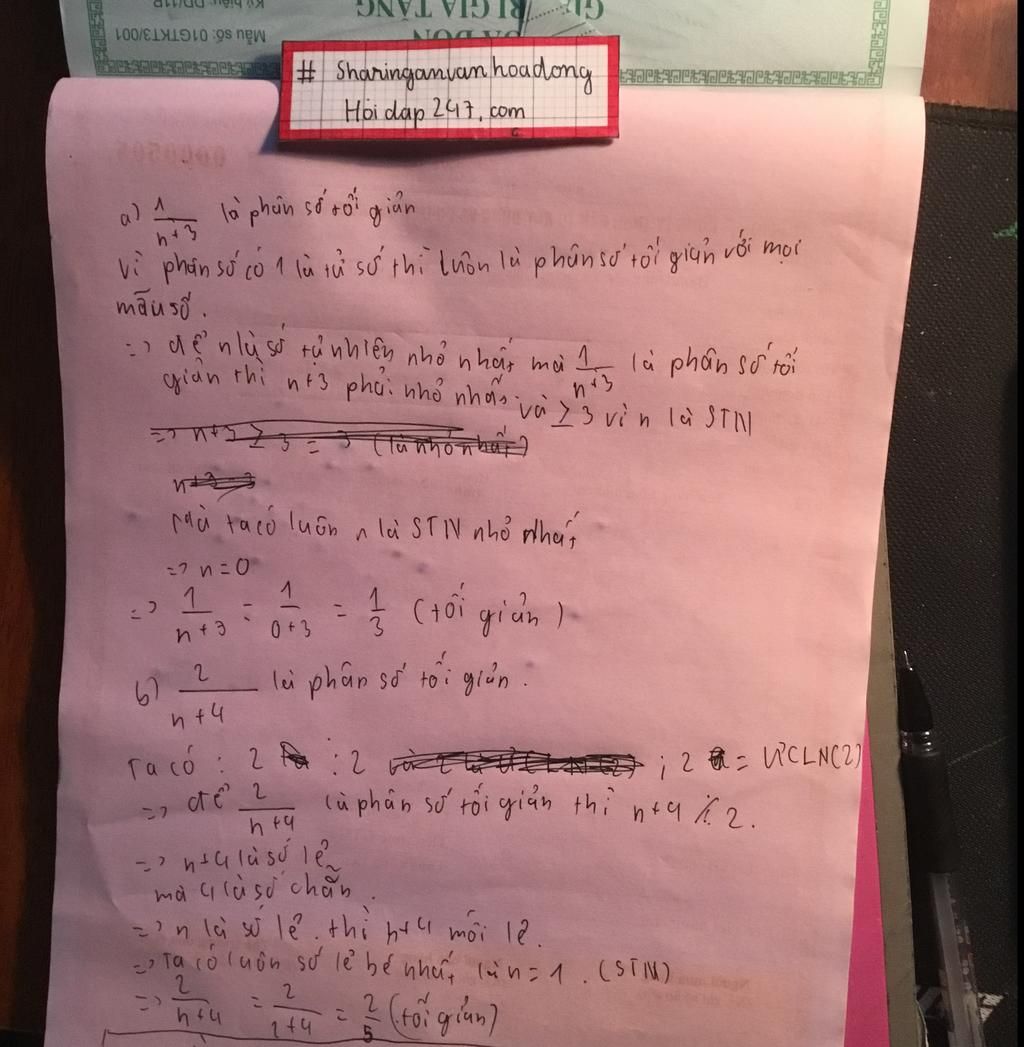 Mẫu số: 01GTKT3/001
# Sharinganvanhoadong
Hỏi dap 247.com
a) 1/(n+3) là phân số tối giản
Vì phân số có 1 là tử số thì luôn là phân số tối giản với mọi
mẫu số.
=> để n là số tự nhiên nhỏ nhất mà 1/(n+3) là phân số tối
giản thì n+3 phải nhỏ nhất và ≥ 3 vì n là STN
=> n+3 ≥ 3 = 3 (là nhỏ nhất)
n+3=3
Mà ta có luôn n là STN nhỏ nhất
=> n=0
=> 1/(n+3) = 1/(0+3) = 1/3 (tối giản)
b) 2/(n+4) là phân số tối giản.
Ta có : 2 ⋮ 2 ; 2 = ƯCLN(2)
=> để 2/(n+4) là phân số tối giản thì n+4 ⋮̸ 2.
=> n+4 là số lẻ
mà 4 là số chẵn.
=> n là số lẻ thì n+4 mới lẻ.
=> Ta có luôn số lẻ bé nhất là n=1. (STN)
=> 2/(n+4) = 2/(1+4) = 2/5 (tối giản)